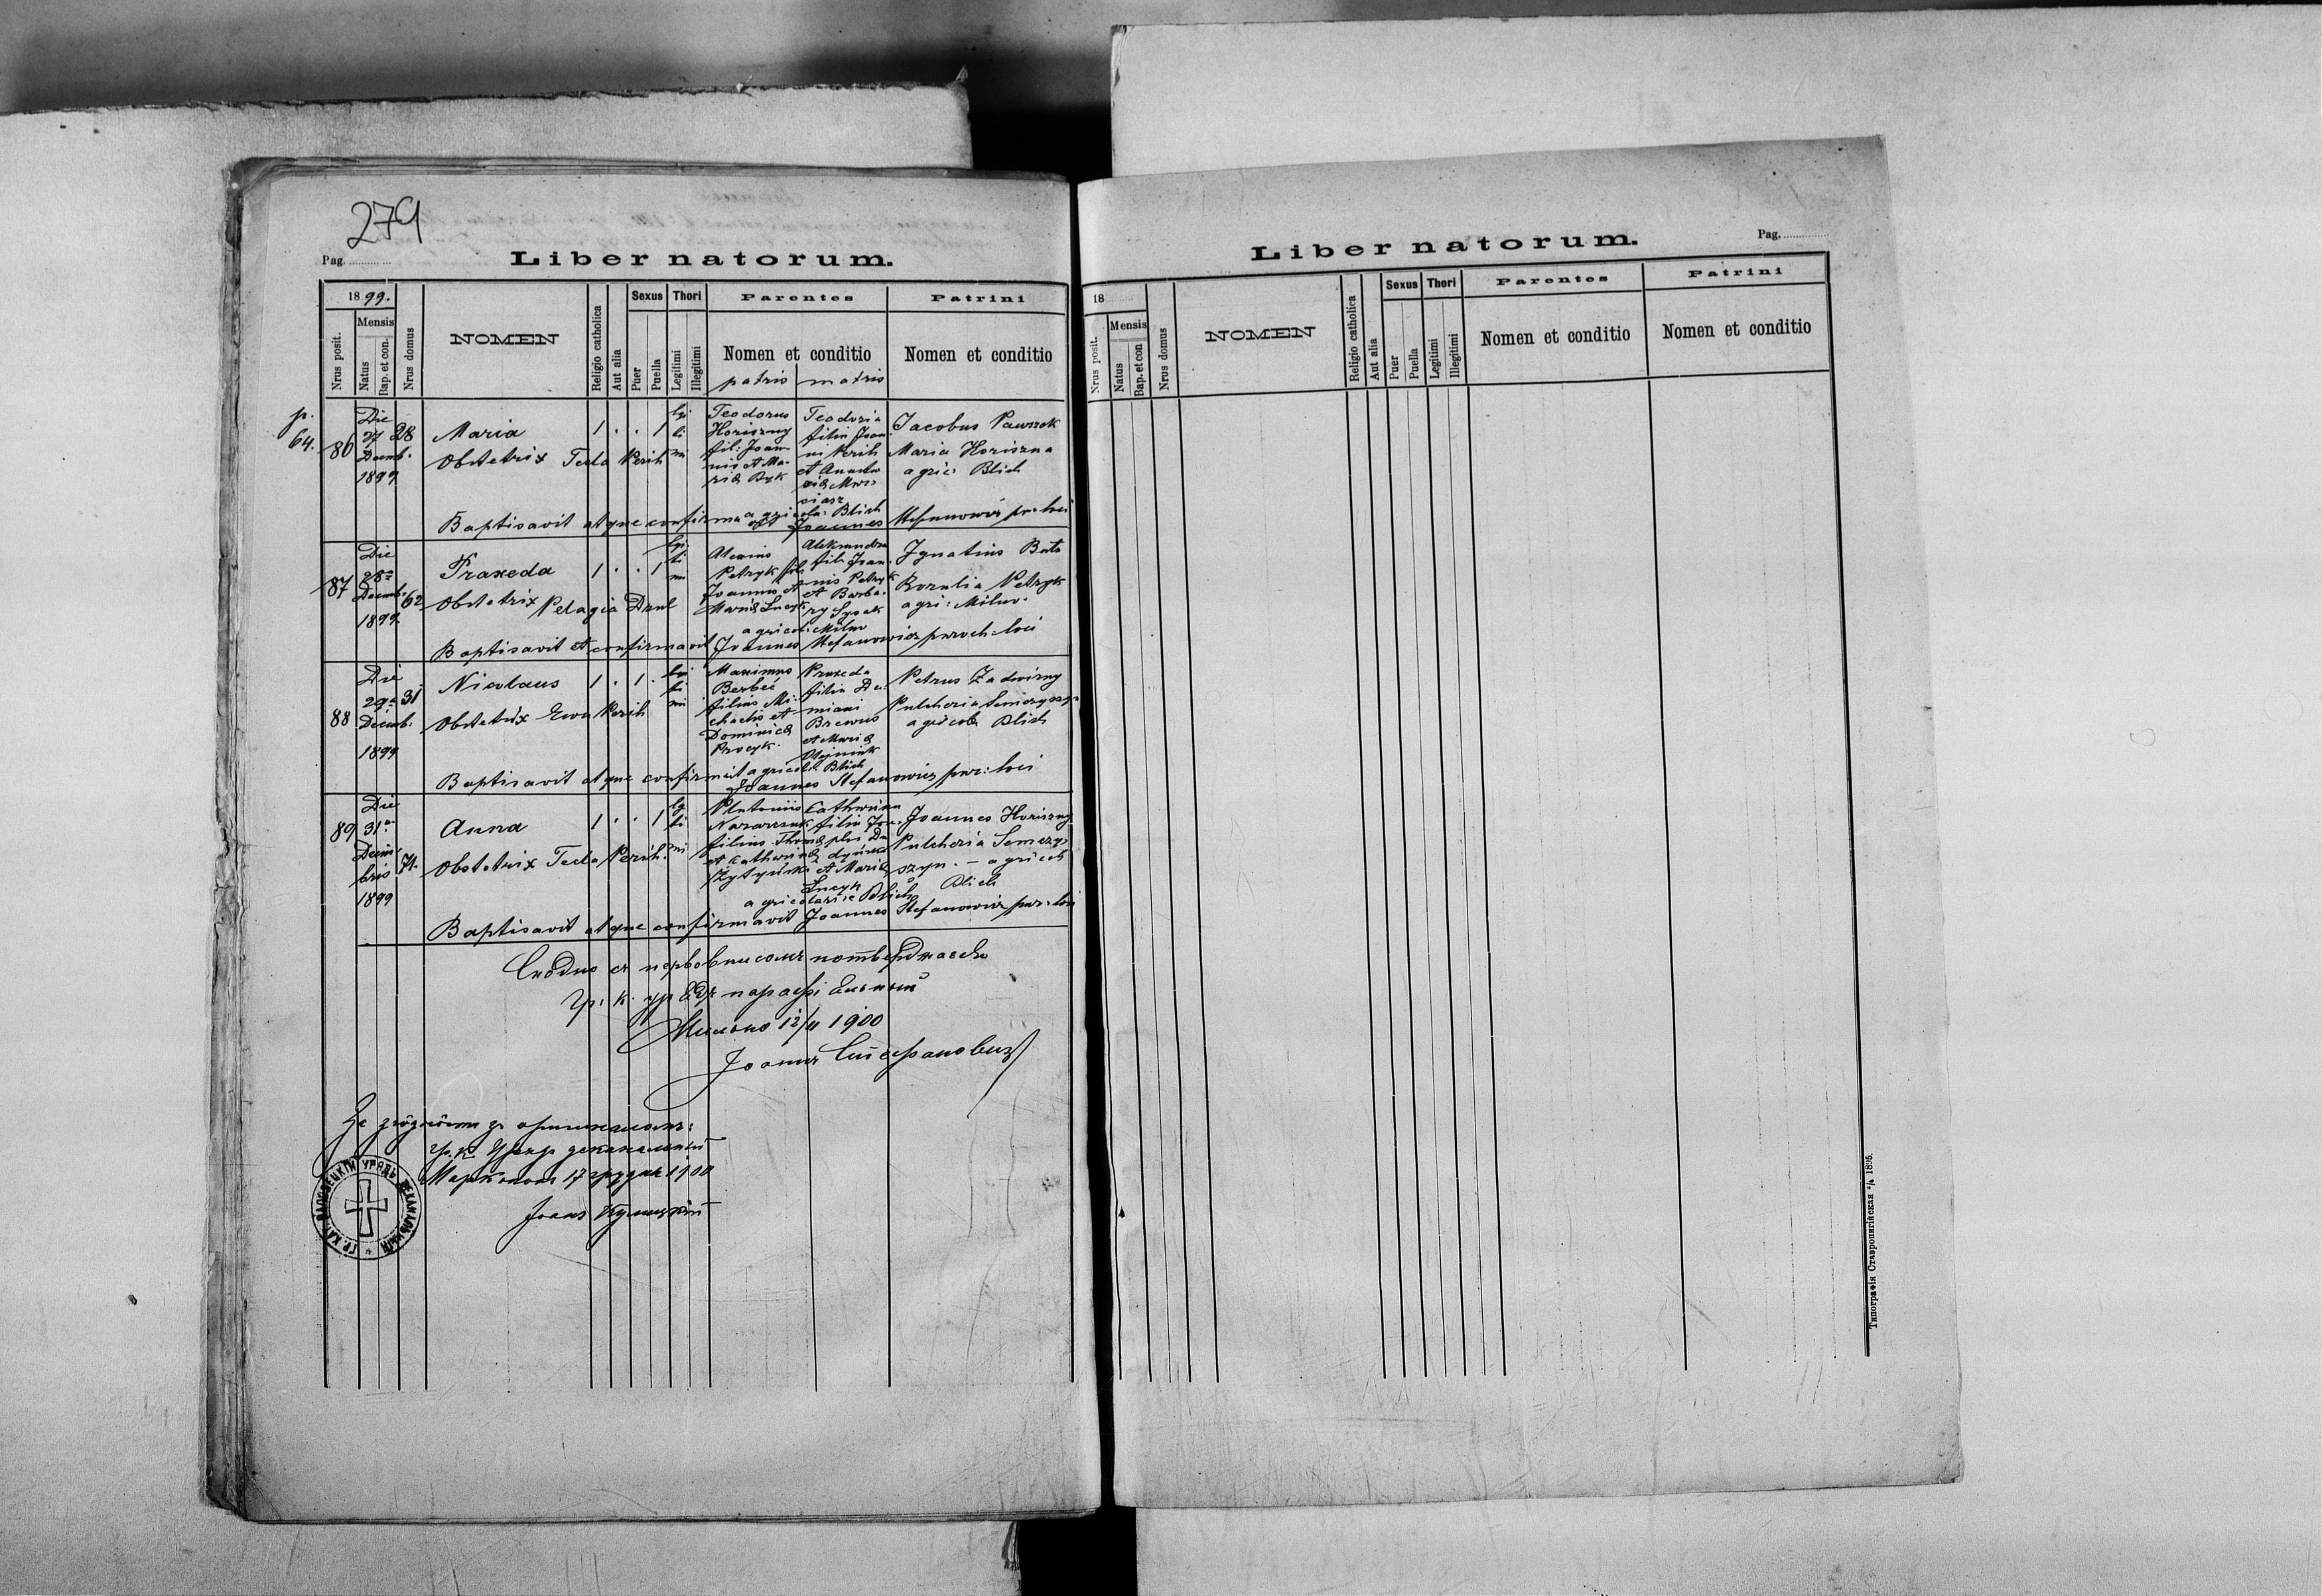 279
Pag.
Liber natorum.
1899.
Nrus posit.
Mensis
Natus
Bap. et con.
Nrus domus
NOMEN
Religio catholica
Aut alia
Sexus
Puer
Puella
Thori
Legitimi
Illegitimi
Parentes
Nomen et conditio
patris matris
Patrini
Nomen et conditio
p. 64.
86
Die
27
Decemb.
1899
28
Maria
Obstetrix Tecla Perih
1 . . 1
lgi
ti
mi
Teodorus
Horiszny
fil: Joan
nis et Ma-
riæ Byk
Teodozia
filia Joan
ni Perih
et Anasta
siæ
agricolæ Blich
Jacobus Pawszok
Maria Horiszna
agric: Blich
Baptisavit atque confirmavit Joannes Stefanowicz par: loci
87
Die
28a
Decemb.
1899
62
Praxeda
Obstetrix Pelagia Dzul
1 . . 1
lgi
ti
mi
Alexius
Petryk fil:
Joannes et
Mariæ Łucyk
Aleksandra
fil: Joan
nis Petryk
et Barba-
ry Sysak
agricol: Milno
Ignatius Bats
Rozalia Petryk
agri: Milno.
Baptisavit et confirmavit Joannes Stefanowicz paroch: loci
88
Die
29a
Decemb:
1899
31
Nicolaus
Obstetrix Ewa Perih
1 . 1 .
lgi
ti
mi
Maximus
Berbeć
filius Mi-
chaelis et
Dominicæ
Procyk.
Praxeda
filia Da-
miani
Brewus
et Mariæ
Olijniuk
agricolæ Blich
Petrus Zadwirny
Pulcheria Semczyszyn
agricolæ Blich
Baptisavit atque confirmavit Joannes Stefanowicz par: loci
89
Die
31a
Decem-
bris
1899
71.
Anna
Obstetrix Tecla Perih.
1 . . 1
lg
ti
mi
Nazarczuk
filius Thomæ
et Catharinæ
Catharina
filia Jos-
et Mariæ
Łucyk
agricolariæ Blich
Joannes Horiszny
Pulcheria Semczy-
szyn. – agricolæ
Blich
Baptisavit atque confirmavit Joannes Stefanowicz par: loci
Сходно съ первовписомъ потверджаесь
Мильно 12/II 1900
Іоаннъ Стефановичъ
Марк 17 грудня 1900
ГР. КАТ. ЗАЛОЗЕЦКІЙ УРЯДЪ ДЕКАНАЛЬНЫЙ
Pag.
Liber natorum.
18
Nrus posit.
Mensis
Natus
Bap. et con
Nrus domus
NOMEN
Religio catholica
Aut alia
Sexus
Puer
Puella
Thori
Legitimi
Illegitimi
Parentes
Nomen et conditio
Patrini
Nomen et conditio
Типографія Ставропигійская 1895.